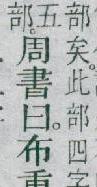 部矣。此部四字
五部。周書曰。布重